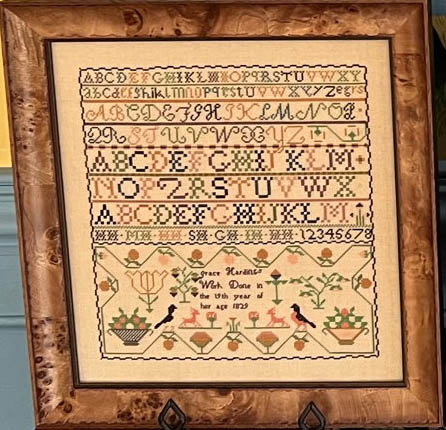 ABCDEFGHIKLMNOPQRSTUVWXY
abcdefghiklmnopqrstuvwxyz
ABCDEFGHIKLMNOP
QRSTUVWXYZ
ABCDEFGHIJKLM
NOPQRSTUVWX
ABCDEFGHIJKLM
HH MH HH SH GH HH HH 12345678
grace Harding
Work Done in
the 19th year of
her age 1829